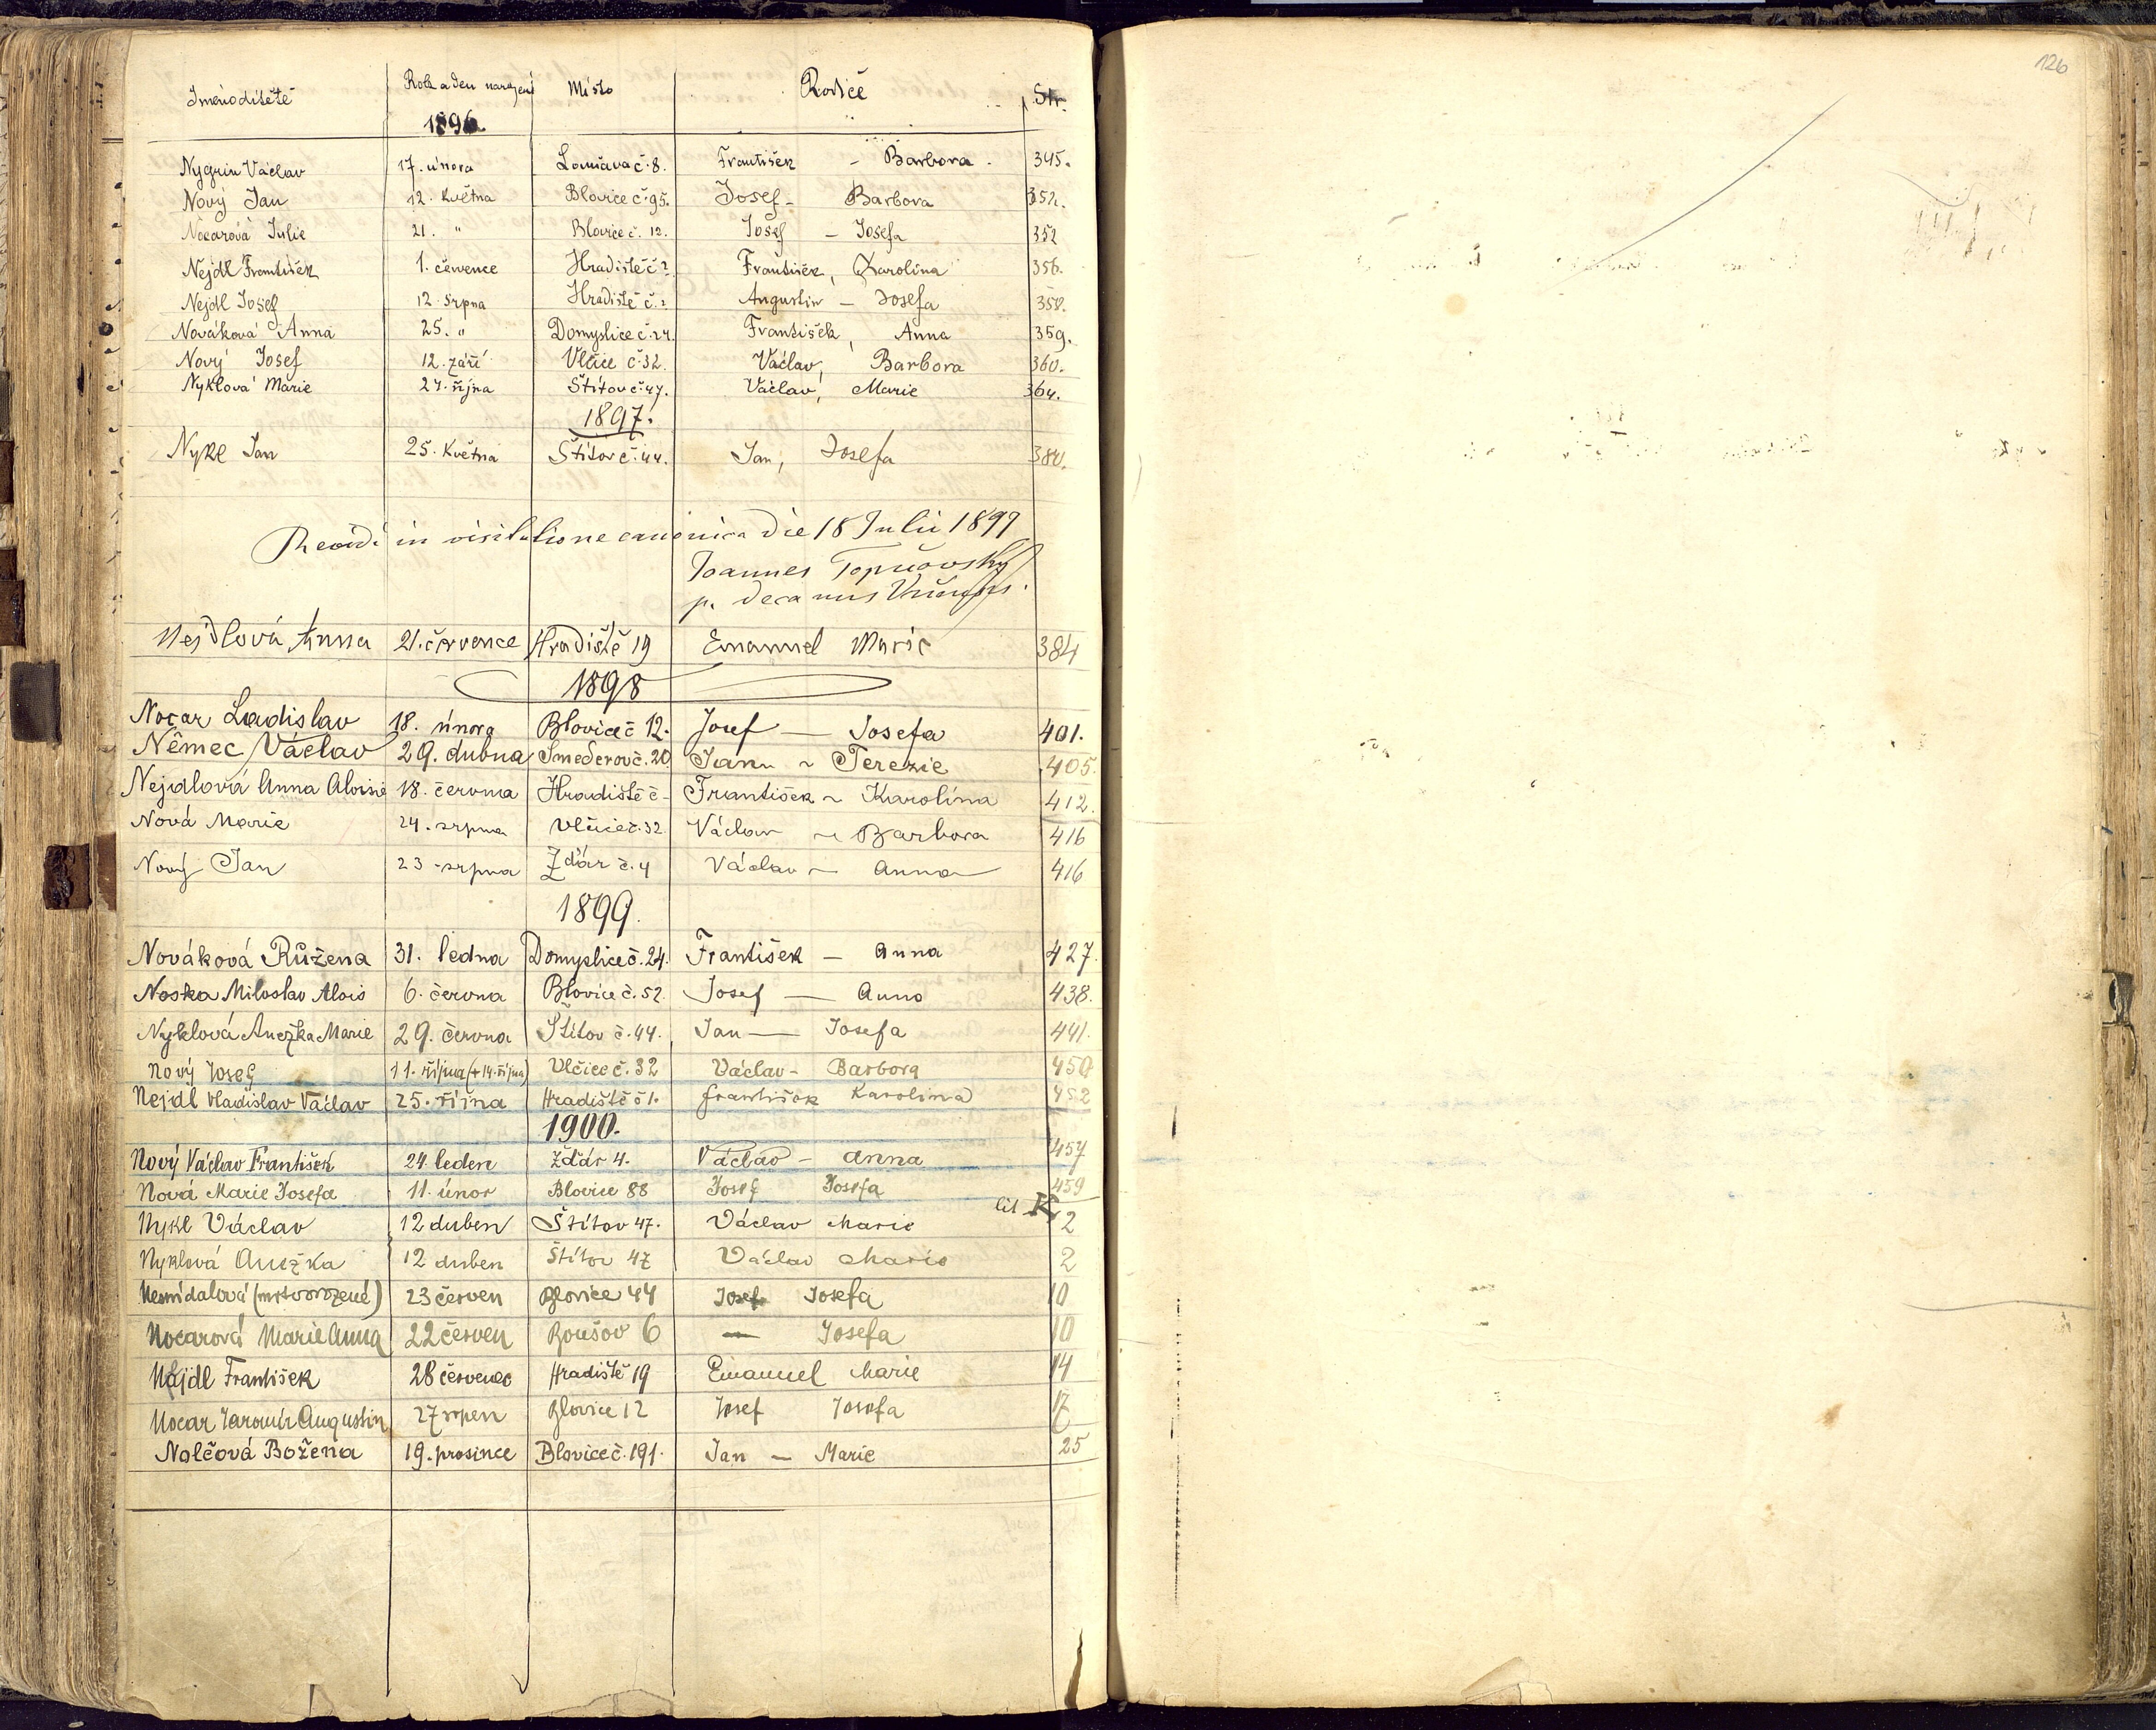 126
Jméno dítěte Rok a den narození Místo Rodiče Str.
1896
Nygrin Václav 17. února č. 8. František - Barbora. 345.
Nový Jan 12. Května Blovice č. 95. Josef - Barbora 352.
Nocarová Julie 21. " Blovice č. 12. Josef - Josefa 352
Nejdl František 1. července Hradiště č 2 František, Karolína 356.
Nejdl Josef 12. srpna Hradiště č. 2 Augustin - Josefa 358.
Nováková Anna 25. " Domyslice č. 24. František, Anna 359.
Nový Josef 12. září Vlčice č. 32. Václav, Barbora 360.
Nyklová Marie 27. října Štítov č. 47. Václav, Marie 364.
1897.
Nykl Jan 25. Května Štítov č. 44. Jan, Josefa 380.
Revidi in visitatione canonica die 18 Julii 1897
Joannes
p. decanus
Nejdlová Anna 21. července Hradiště 19 Emanuel Marie 384
1898
Nocar Ladislav 18. února Blovice č 12. Josef — Josefa 401.
Němec Václav 29. dubna Smederov č. 20 Jan ~ Terezie 405.
Nejdlová Anna Aloisie 18. června Hradiště č - František ~ Karolína 412.
Nová Marie 24. srpna Vlčice č. 32 Václav ~ Barbora 416
Nový Jan 23 - srpna Ždár č. 4 Václav ~ Anna 416
1899.
Nováková Růžena 31. ledna Domyslice č. 24. František - Anna 427.
Noska Miloslav Alois 6. června Blovice č. 52. Josef — Anna 438.
Nyklová Anežka Marie 29. června Štítov č. 44. Jan — Josefa 441.
Nový Josef 11. října (+ 14. října) Vlčice č. 32 Václav - Barbora 450
Nejdl Vladislav Václav 25. října Hradiště č 1. František Karolina 452
1900.
Nový Václav František 24 leden Ždár 4. Václav - Anna 457
Nová Marie Josefa 11. únor Blovice 88 Josef Josefa 459
lit K
Nykl Václav 12 duben Štítov 47. Václav Marie 2
Nyklová Anežka 12 duben Štítov 47 Václav Marie 2
Nesnídalová (mrtvorozené) 23 červen Blovice 44 Josef Josefa 10
Nocarová Marie Anna 22 červen Boušov 6 — Josefa 10
Nejdl František 28 červenec Hradiště 19 Emanuel Marie 14
Nocar Jaromír Augustin 27 srpen Blovice 12 Josef Josefa 17
Nolčová Božena 19. prosince Blovice č. 191. Jan — Marie 25